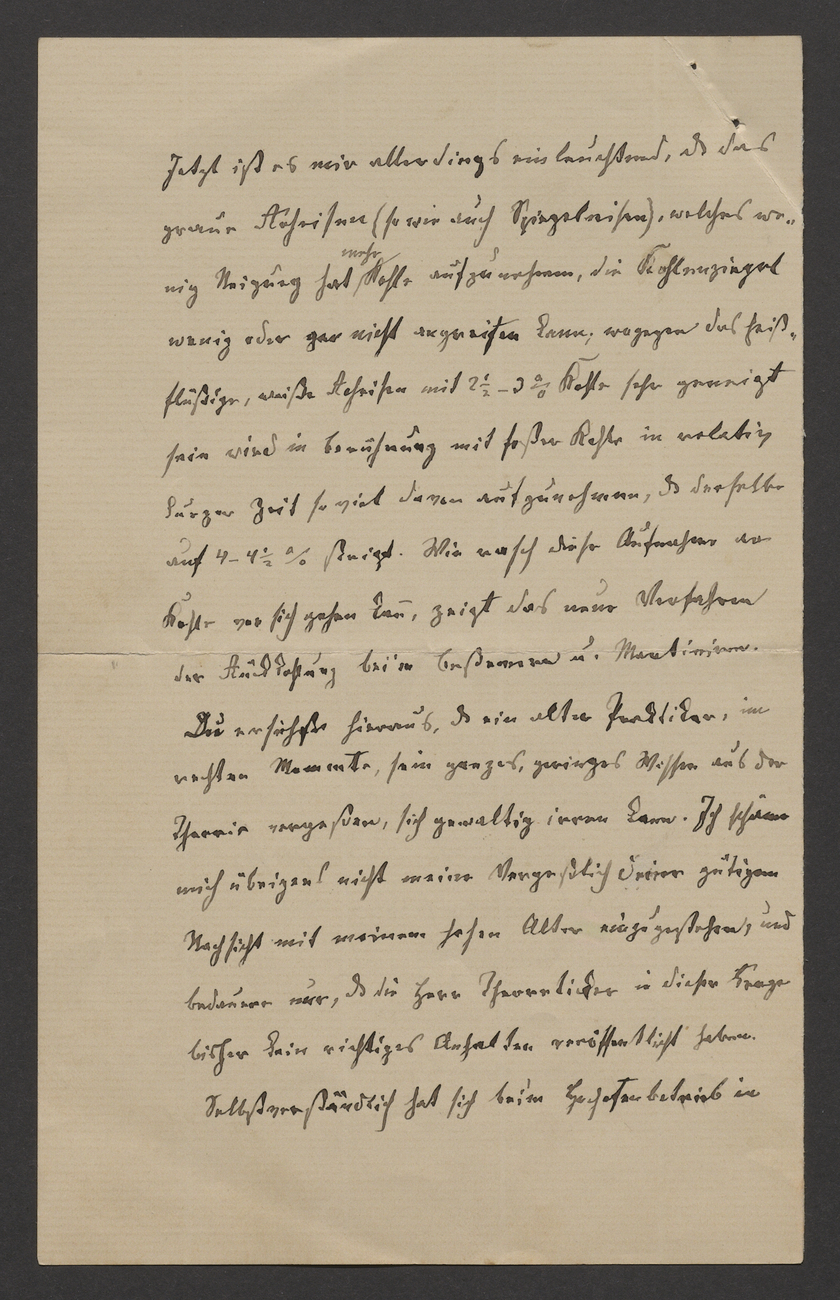 Jetzt ist es mir allerdings einleuchtend, dß das
graue Roheisen (so wie auch Spiegeleisen), welches we-
nig Neigung hat mehr Kohle aufzunehmen, die Kohlenziegel
wenig oder gar nicht angreifen kann; wogegen das heiß-
flüßige, weiße Roheisen mit 2½ – 3 % Kohle sehr geneigt
sein wird in Berührung mit fester Kohle in relativ
kurzer Zeit so viel davon aufzunehmen, dß derselbe
auf 4 – 4½ % steigt. Wie rasch diese Aufnahme an
Kohle vor sich gehen kann, zeigt das neue Verfahren
der Rückkohlung beim Beßemern u. Martiniren.
Du ersiehst hieraus, dß ein alter Praktiker, im
rechten Momente, sein ganzes, geringes Wissen aus der
Theorie vergeßen, sich gewaltig irren kann. Ich schäme
mich übrigens nicht meine Vergeßlich deiner gütigen
Nachsicht mit meinem hohen Alter einzugestehen, und
bedauere nur, dß die Herr Theoretiker in dieser Frage
bisher kein richtiges Anhalten veröffentlicht haben.
Selbstverständlich hat sich beim Hochofenbetrieb in